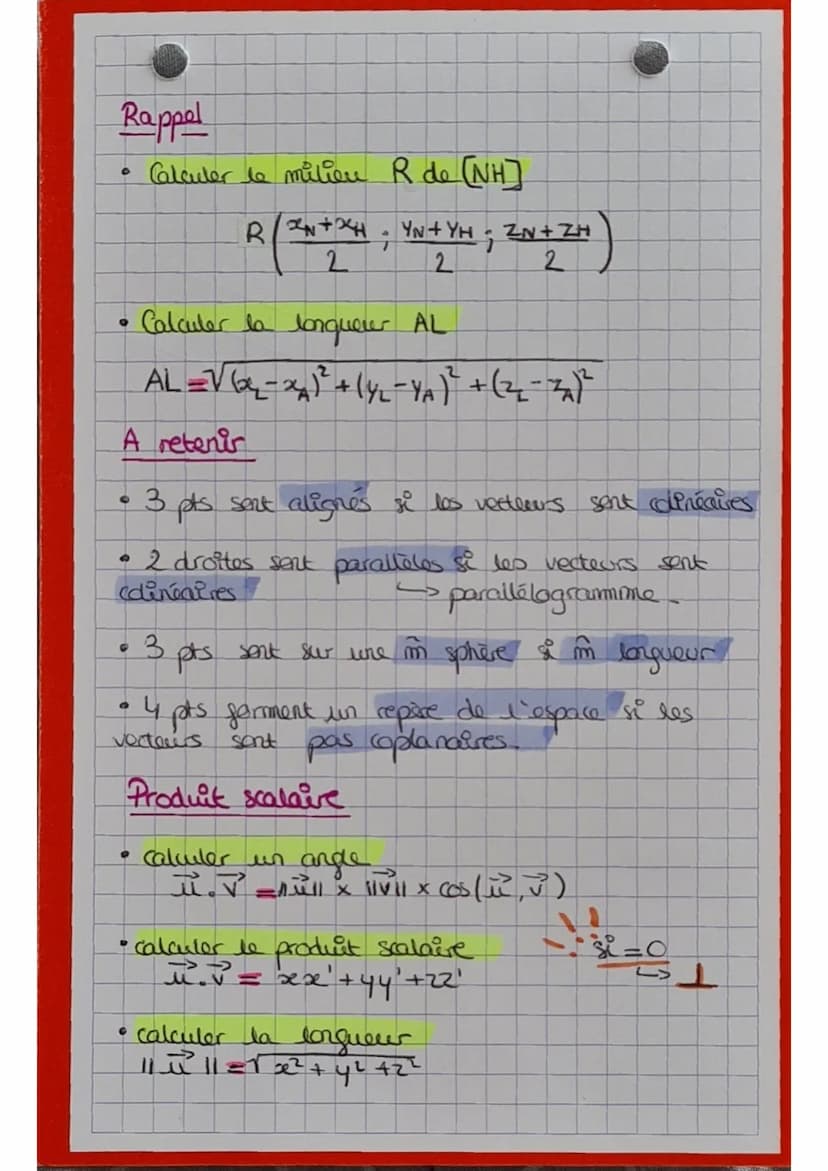 Rappel
• Calculer le milieu R de [NH]
R ( (xN + xH)/2 ; (yN + yH)/2 ; (zN + zH)/2 )
• Calculer la longueur AL
AL = √((xL - xA)² + (yL - yA)² + (zL - zA)²)
A retenir
• 3 pts sont alignés si les vecteurs sont colinéaires
• 2 droites sont parallèles si les vecteurs sont
colinéaires ↳ parallélogramme.
• 3 pts sont sur une m̂ sphère si m̂ longueur
• 4 pts forment un repère de l'espace si les
vecteurs sont pas coplanaires.
Produit scalaire
• calculer un angle
u⃗.v⃗ = ||u⃗|| × ||v⃗|| × cos(u⃗, v⃗)
• calculer le produit scalaire si = 0
u⃗.v⃗ = xx' + yy' + zz' ↳ ⊥
• calculer la longueur
||u⃗|| = √(x² + y² + z²)